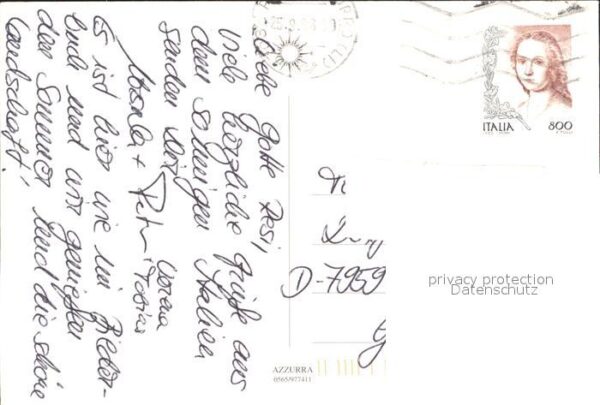 Liebe Gotte Resi,
Viele herzliche Grüße aus
dem sonnigen Italien
senden Dir
Verena
Ursula + Peter + Tobias
Es ist hier wie im Bilder-
buch und wir genießen
den Sommer und die schöne
Landschaft!
ITALIA 800
D-7959
privacy protection
Datenschutz
AZZURRA
0565/977411